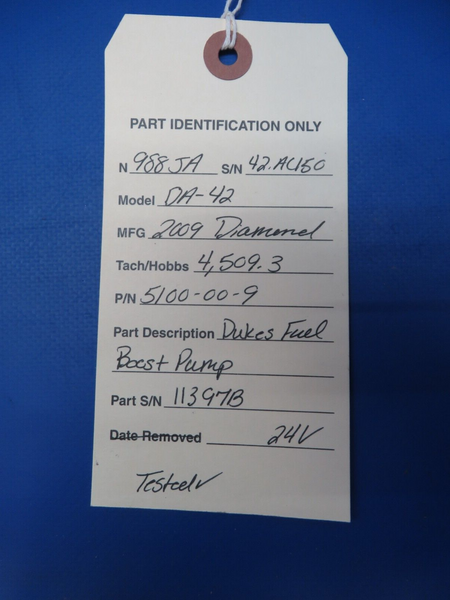 PART IDENTIFICATION ONLY
N 988JA S/N 42.AC150
Model DA-42
MFG 2009 Diamond
Tach/Hobbs 4,509.3
P/N 5100-00-9
Part Description Dukes Fuel
Boost Pump
Part S/N 11397B
Date Removed 24V
Tested✓